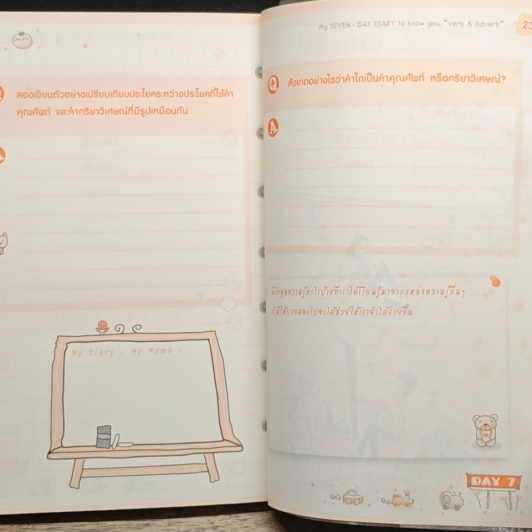 ลองเขียนตัวอย่างเปรียบเทียบประโยคระหว่างประโยคที่ใช้คำ
คุณศัพท์ และคำกริยาวิเศษณ์ที่มีรูปเหมือนกัน
My Diary - My Memo
My SEVEN - DAY DIARY to know you, "Verb & Adverb"
Q สังเกตอย่างไรว่าคำใดเป็นคำคุณศัพท์ หรือกริยาวิเศษณ์?
A
DAY 7